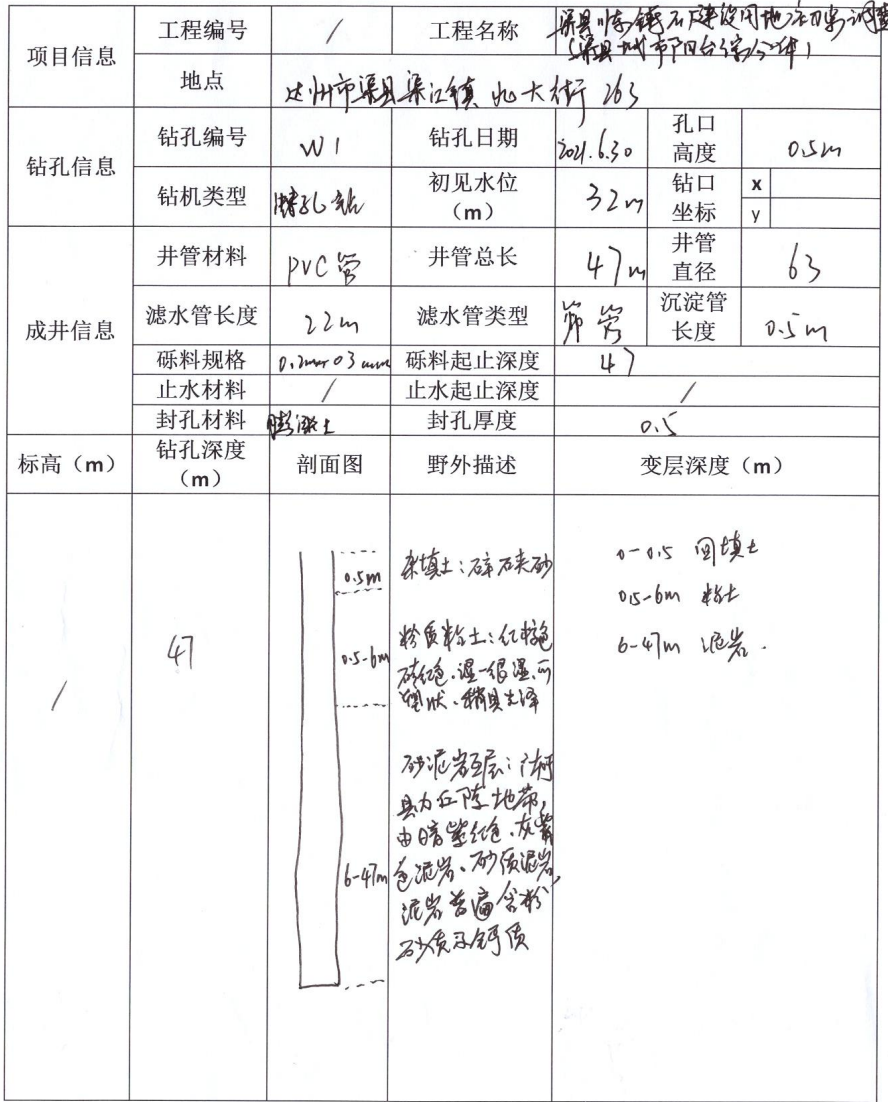 项目信息 工程编号 / 工程名称 渠县川东铸石厂建设用地土初步调查
(渠县城市阳台综合体)
地点 达州市渠县渠江镇北大街263
钻孔信息 钻孔编号 W1 钻孔日期 2021.6.30 孔口高度 0.5m
钻机类型 钻 初见水位(m) 32m 钻口坐标 x
y
成井信息 井管材料 PVC管 井管总长 47m 井管直径 63
滤水管长度 22m 滤水管类型 筛管 沉淀管长度 0.5m
砾料规格 砾料起止深度 47
止水材料 / 止水起止深度 /
封孔材料 膨润土 封孔厚度 0.5
标高(m) 钻孔深度(m) 剖面图 野外描述 变层深度(m)
/
47
0.5m
0.5-6m
6-47m
杂填土:碎石夹砂
粉质粘土:红棕色
砖红色、湿-很湿、可
塑状、稍具光泽
砂泥岩互层:
县为丘陵地带,
由暗紫红色、灰紫
色泥岩、砂质泥岩,
泥岩普遍含粉
砂质及钙质
0-0.5 回填土
0.5-6m 粘土
6-47m 泥岩.